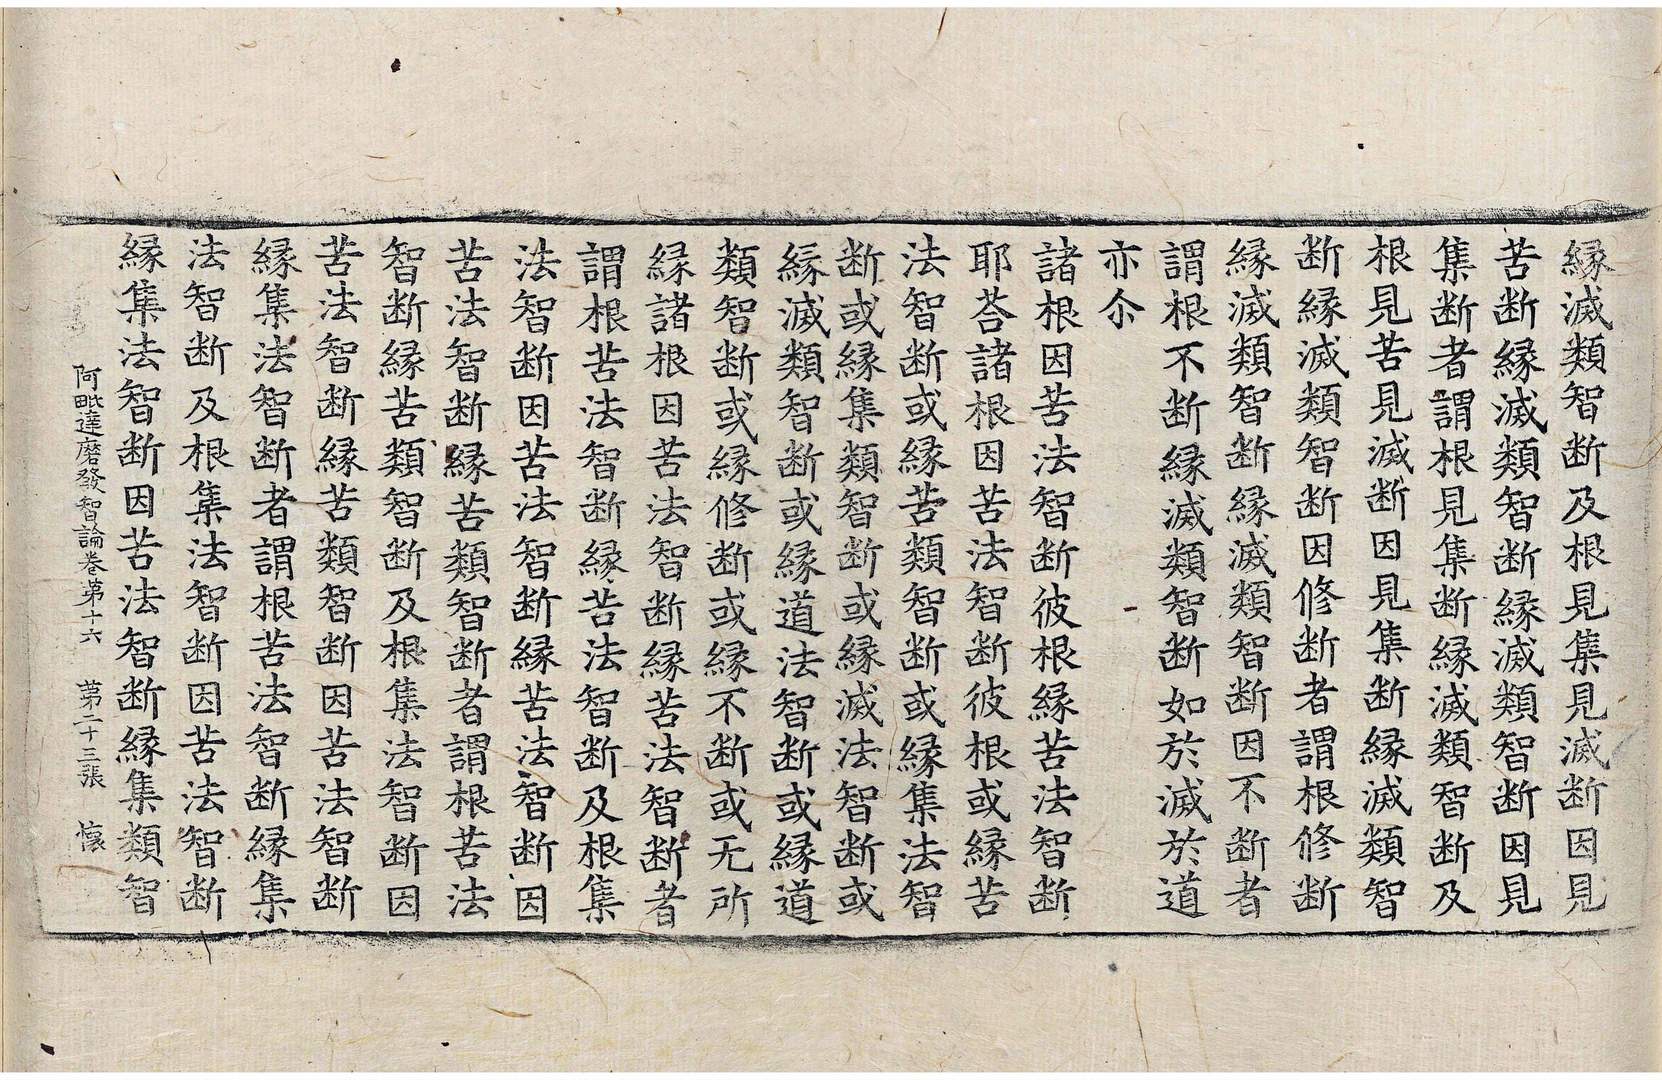 縁滅類智断及根見集見滅断因見
苦断縁滅類智断縁滅類智断因見
集断者謂根見集断縁滅類智断及
根見苦見滅断因見集断縁滅類智
断縁滅類智断因修断者謂根修断
縁滅類智断縁滅類智断因不断者
謂根不断縁滅類智断如於滅於道
亦尒
諸根因苦法智断彼根縁苦法智断
耶荅諸根因苦法智断彼根或縁苦
法智断或縁苦類智断或縁集法智
断或縁集類智断或縁滅法智断或
縁滅類智断或縁道法智断或縁道
類智断或縁修断或縁不断或无所
縁諸根因苦法智断縁苦法智断者
謂根苦法智断縁苦法智断及根集
法智断因苦法智断縁苦法智断因
苦法智断縁苦類智断者謂根苦法
智断縁苦類智断及根集法智断因
苦法智断縁苦類智断因苦法智断
縁集法智断者謂根苦法智断縁集
法智断及根集法智断因苦法智断
縁集法智断因苦法智断縁集類智
阿毗達磨發智論卷第十六 第二十三張 懷